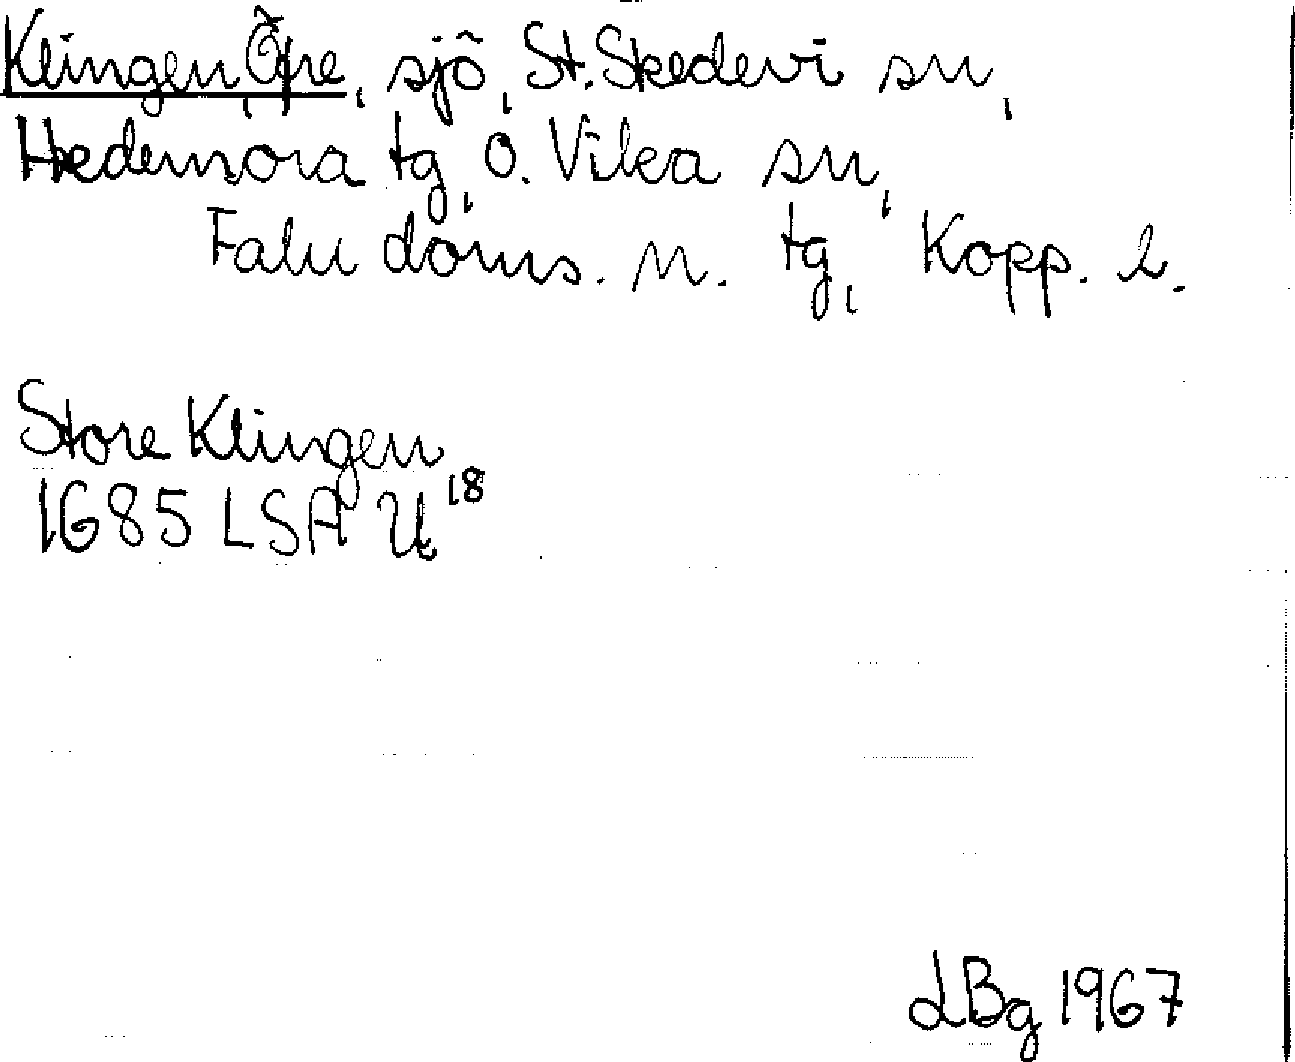 Klingen, Övre, sjö, St. Skedevi sn,
Hedemora tg, O. Vika sn,
Falu doms. n. tg, Kopp. l.
Store Klingen
1685 LSA U 18
LBg 1967